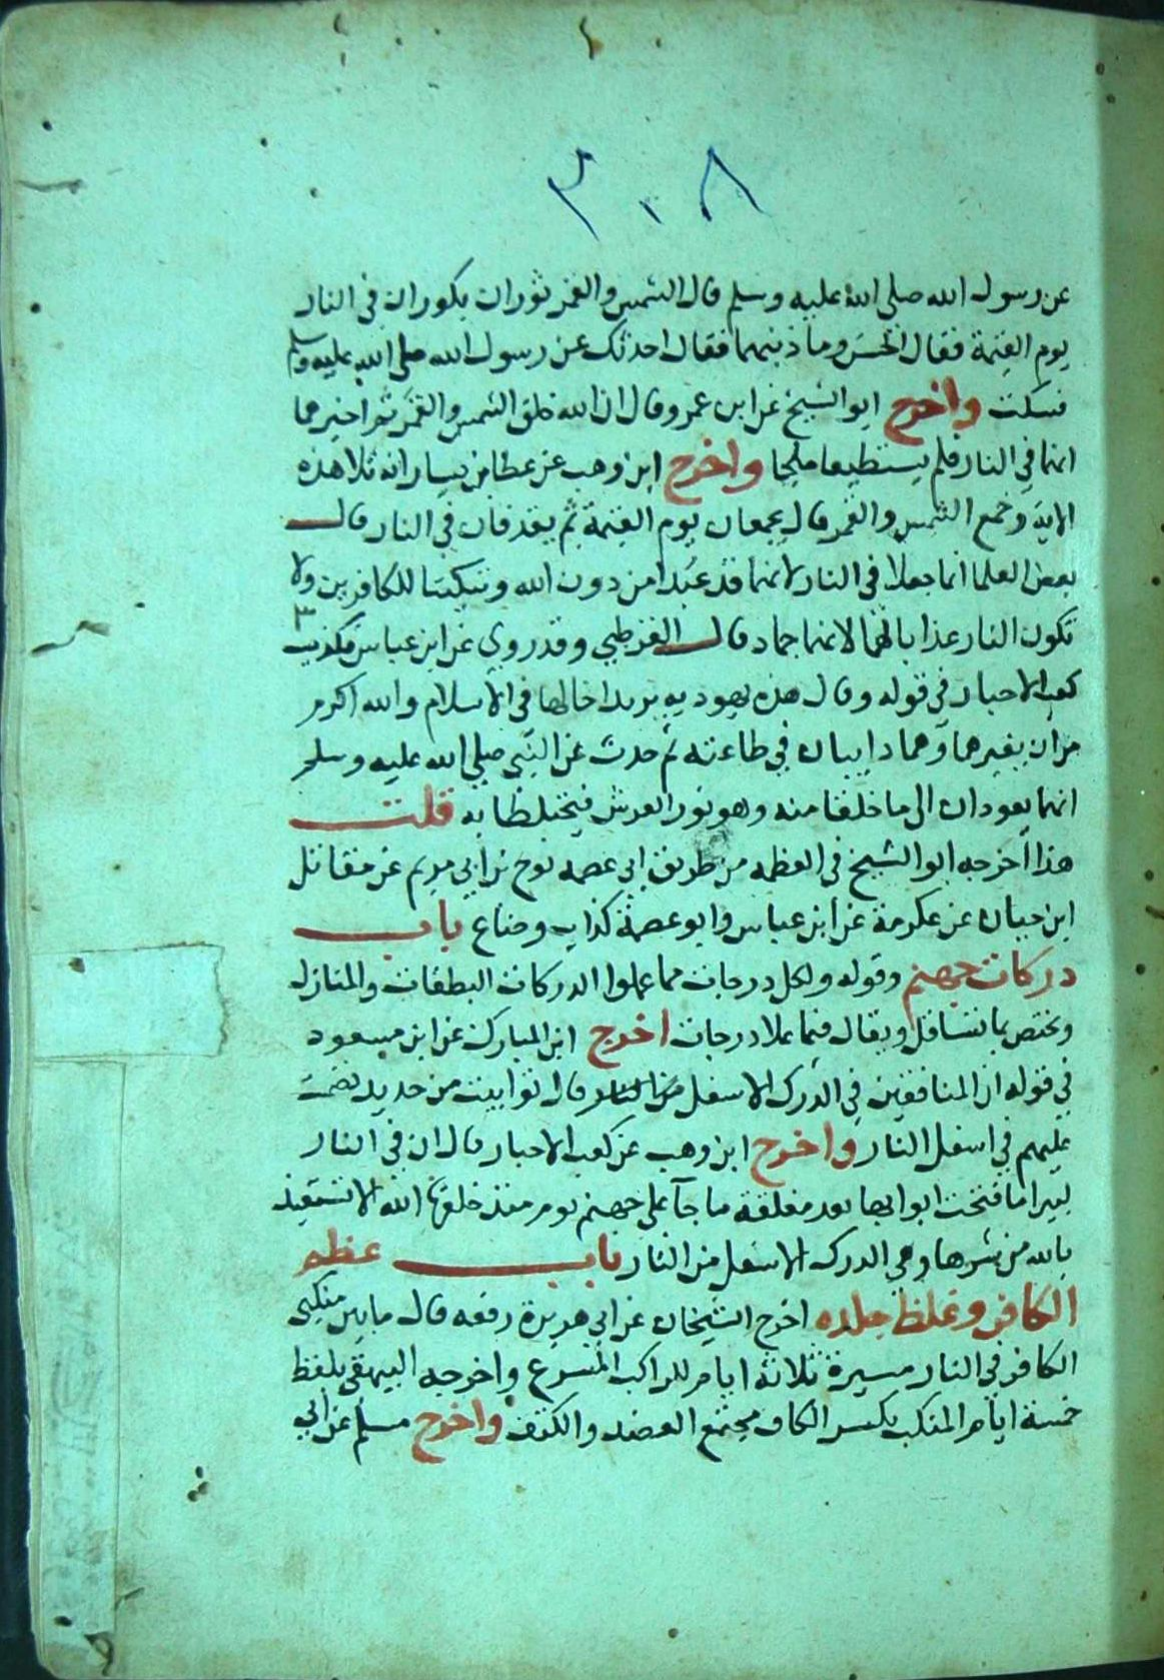 ٣٠٨
عن رسول الله صلى الله عليه وسلم قال الشمس والقمر ثوران يكوران في النار
يوم القيمة فقال الحسن وما ذنبهما فقال احدثك عن رسول الله صلى الله عليه وسلم
فسكت واخرج ابو الشيخ عن ابن عمرو قال ان الله خلق الشمس والقمر ثم اخبرهما
انهما في النار فلم يستطيعا ملجا واخرج ابن وهب عن عطا بن يسار انه تلا هذه
الاية وجمع الشمس والقمر قال يجمعان يوم القيمة ثم يقذفان في النار قال
بعض العلما انما جعلا في النار لانهما قد عبدا من دون الله وتبكيتا للكافرين ولا
تكون النار عذابا لهما لانهما جماد قال القرطبي وقد روي عن ابن عباس تكذيب
كعب الاحبار في قوله وقال هذه يهوديه يريد ادخالها في الاسلام والله اكرم
من ان يغيرهما وهما دايبان في طاعته ثم حدث عن النبي صلى الله عليه وسلم
انهما يعودان الى ما خلقا منه وهو نور العرش فيختلطا به قلت
هذا اخرجه ابو الشيخ في العظمه من طريق ابي عصمه نوح بن ابي مريم عن مقاتل
ابن حيان عن عكرمة عن ابن عباس وابو عصمة كذاب وضاع باب
دركات جهنم وقوله ولكل درجات مما عملوا الدركات الطبقات والمنازل
وتختص بما تسافل ويقال فيما علا درجات اخرج ابن المبارك عن ابن مسعود
في قوله ان المنافقين في الدرك الاسفل من النار قال توابيت من حديد تضمت
عليهم في اسفل النار واخرج ابن وهب عن كعب الاحبار قال ان في النار
لبيرا ما فتحت ابوابها بعد مغلقة ما جآ على جهنم يوم منذ خلقها الله الا تستعيذ
بالله من شرها وهي الدرك الاسفل من النار باب عظم
الكافر وغلظ جلده اخرج الشيخان عن ابي هريرة رفعه قال ما بين منكبي
الكافر في النار مسيرة ثلاثة ايام للراكب المسرع واخرجه البيهقي بلفظ
خمسة ايام المنكب بكسر الكاف مجتمع العضد والكتف واخرج مسلم عن ابي